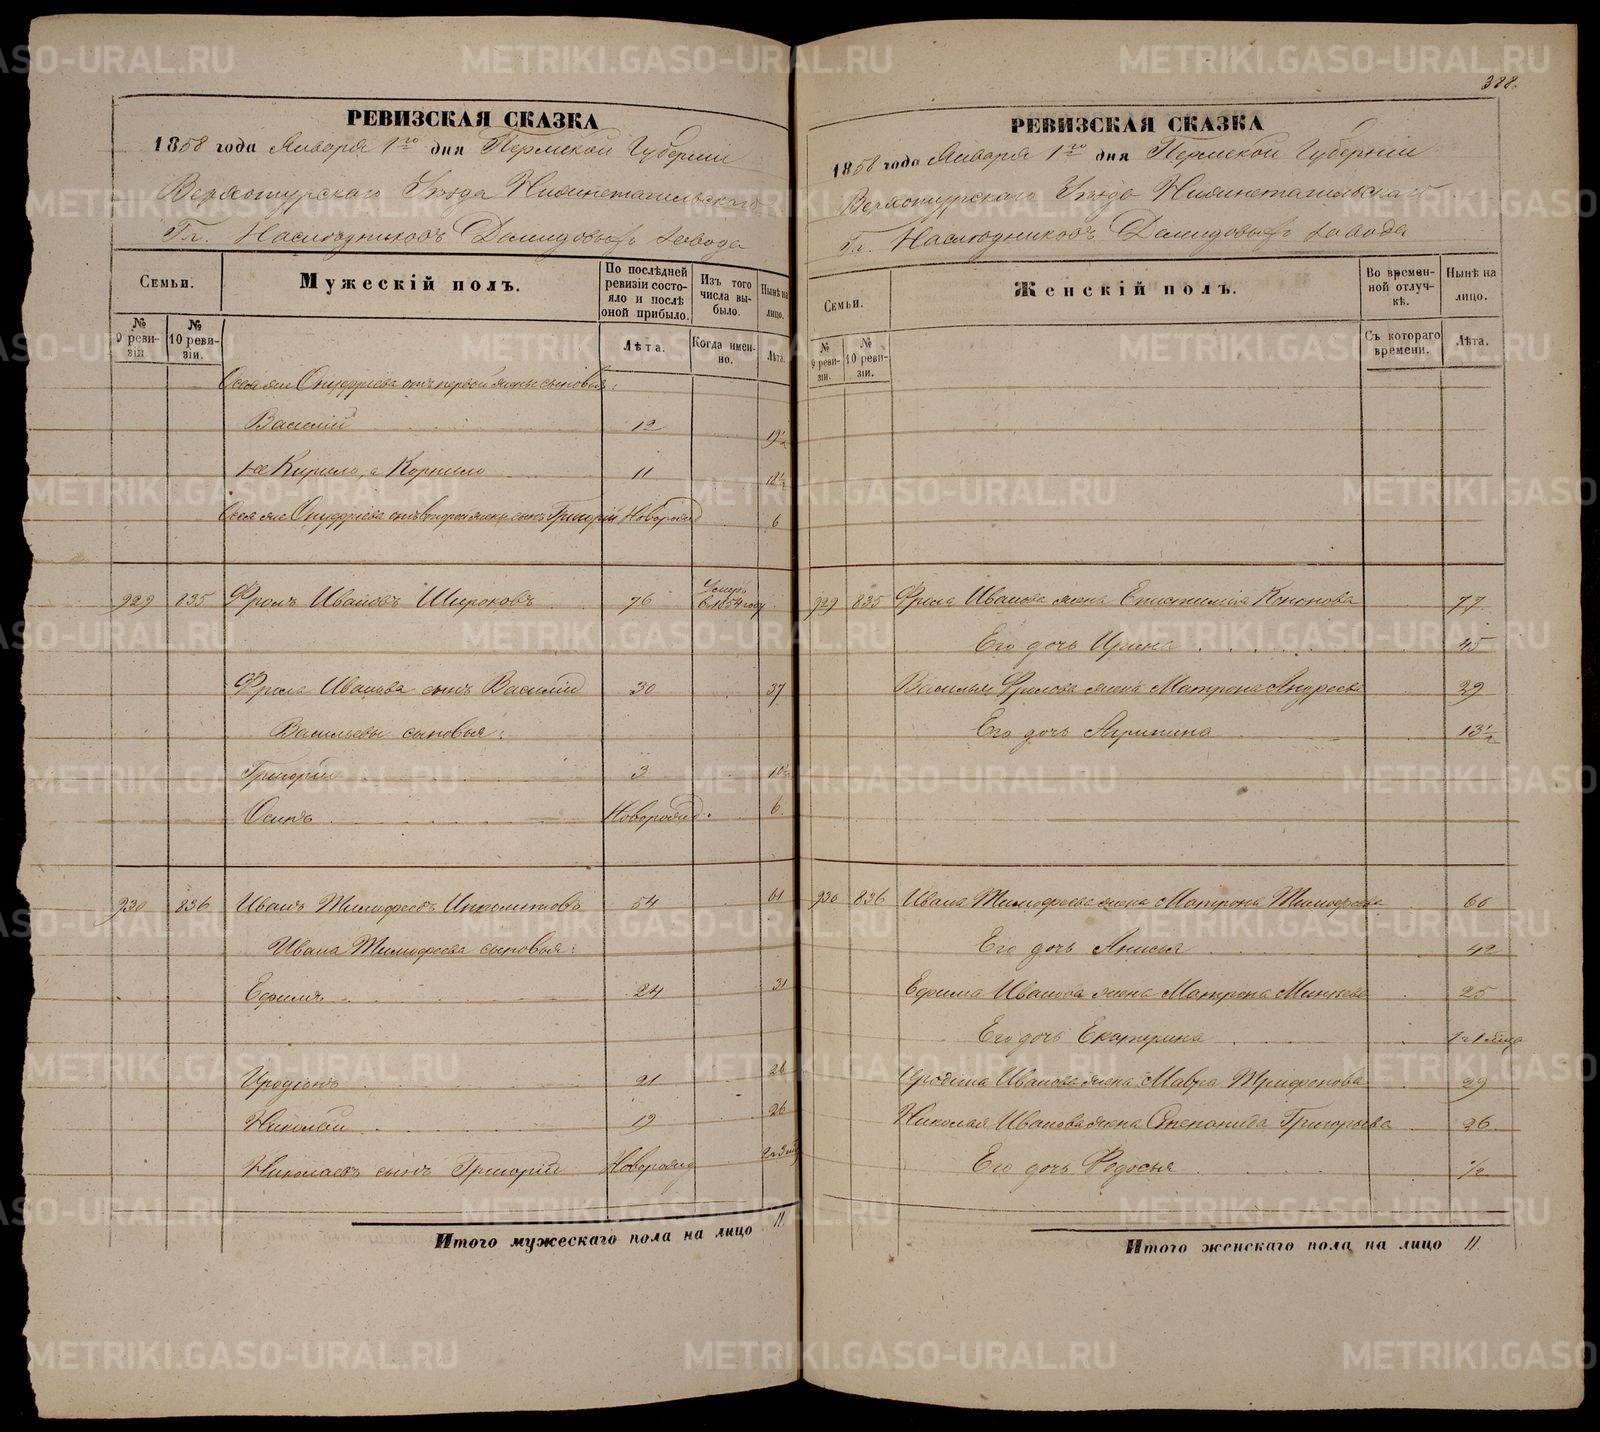 388.
РЕВИЗСКАЯ СКАЗКА
1858 года Января 1го дня Пермской Губерніи
Верхотурскаго Уѣзда Нижнетагильскаго
Гг. Наслѣдниковъ Демидовыхъ завода
Семьи.
Мужескій полъ.
По послѣдней ревизіи состояло и послѣ оной прибыло.
Изъ того числа выбыло.
Нынѣ на лицо.
№ 9 ревизіи.
№ 10 ревизіи.
Лѣта.
Когда именно.
Лѣта.
Осея же Онуфріева отъ первой жены сыновья:
Василій 12 19½
Кирило, а Корнило 11 18½
Осея же Онуфріева отъ второй жены сынъ Григорій Новорожд 6
929 835 Фролъ Ивановъ Широковъ 76 Умеръ въ 1854 году
Фрола Иванова сынъ Василій 30 37
Васильевы сыновья:
Григорій 3 10½
Осипъ Новорожд. 6
930 836 Иванъ Тимофеевъ Ипполитовъ 54 61
Ивана Тимофеева сыновья:
Ефимъ 24 31
Иродіонъ 21 28
Николай 19 26
Николаевъ сынъ Григорій Новорожд
Итого мужескаго пола на лицо 11
РЕВИЗСКАЯ СКАЗКА
1858 года Января 1го дня Пермской Губерніи
Верхотурскаго Уѣзда Нижнетагильскаго
Гг. Наслѣдниковъ Демидовыхъ завода
Семьи.
Женскій полъ.
Во временной отлучкѣ.
Нынѣ на лицо.
№ 9 ревизіи.
№ 10 ревизіи.
Съ котораго времени.
Лѣта.
929 835 Фрола Иванова жена Епистимія Кононова 77
Его дочь Ирина 45
Василья Фролова жена Матрона Андреева 39
Его дочь Агрипина 13½
930 836 Ивана Тимофеева жена Матрона Тимофеева 60
Его дочь Анисья 42
Ефима Иванова жена Матрона 25
Его дочь Екатерина
Иродіона Иванова жена Мавра Трифонова 29
Николая Иванова жена Степанида Григорьева 26
Его дочь Федосья ½
Итого женскаго пола на лицо 11
METRIKI.GASO-URAL.RU